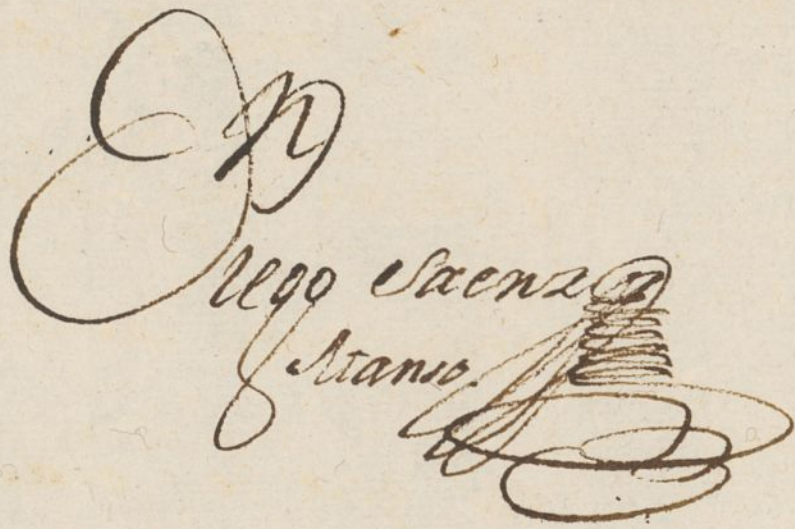 Diego Saenz
Manso